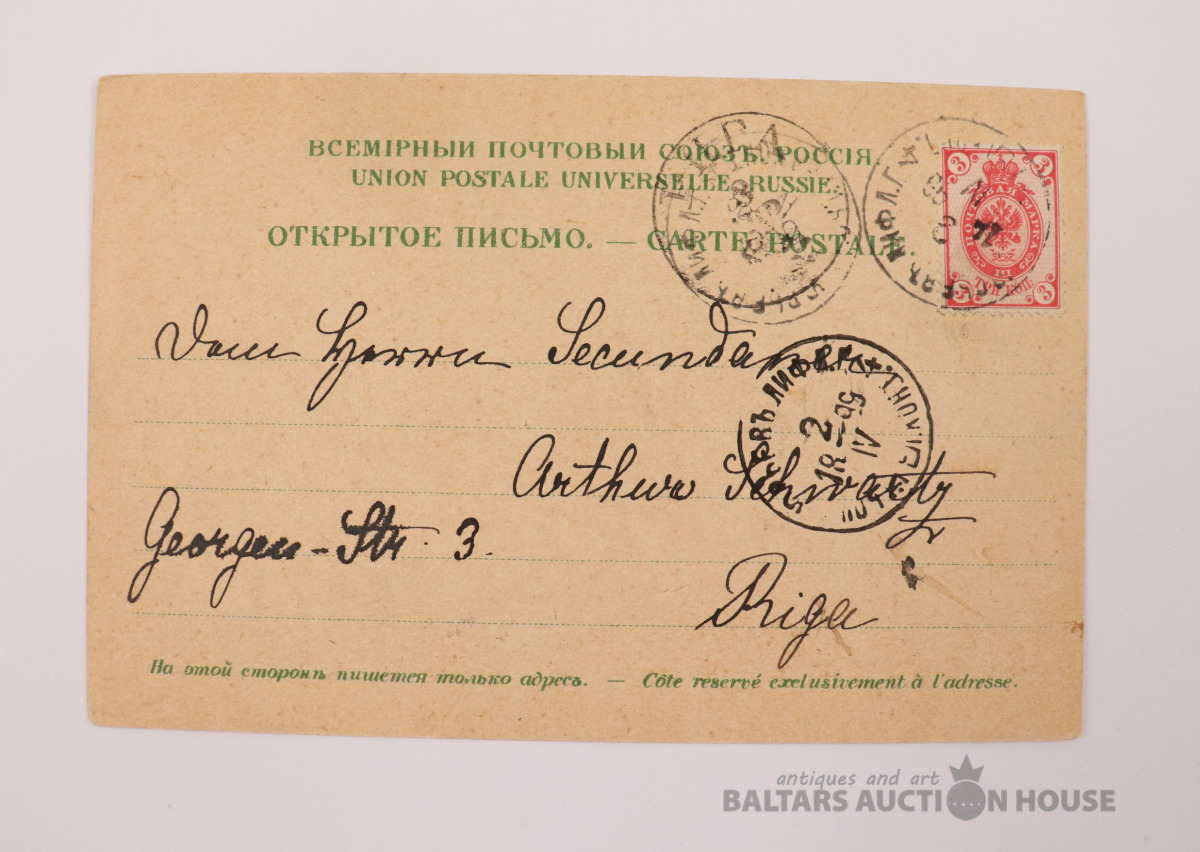 ВСЕМІРНЫЙ ПОЧТОВЫЙ СОЮЗЪ. РОССІЯ
UNION POSTALE UNIVERSELLE. RUSSIE
ОТКРЫТОЕ ПИСЬМО. — CARTE POSTALE.
3 3
ПОЧТОВАЯ МАРКА
ТРИ КОП.
3 3
РИГА
Dem Herrn Secundaner
2
18-95
IV
Arthur Schwartz
Georgen-Str. 3.
Riga
На этой сторонѣ пишется только адресъ. — Côte reservé exclusivement à l'adresse.
antiques and art
BALTARS AUCTION HOUSE